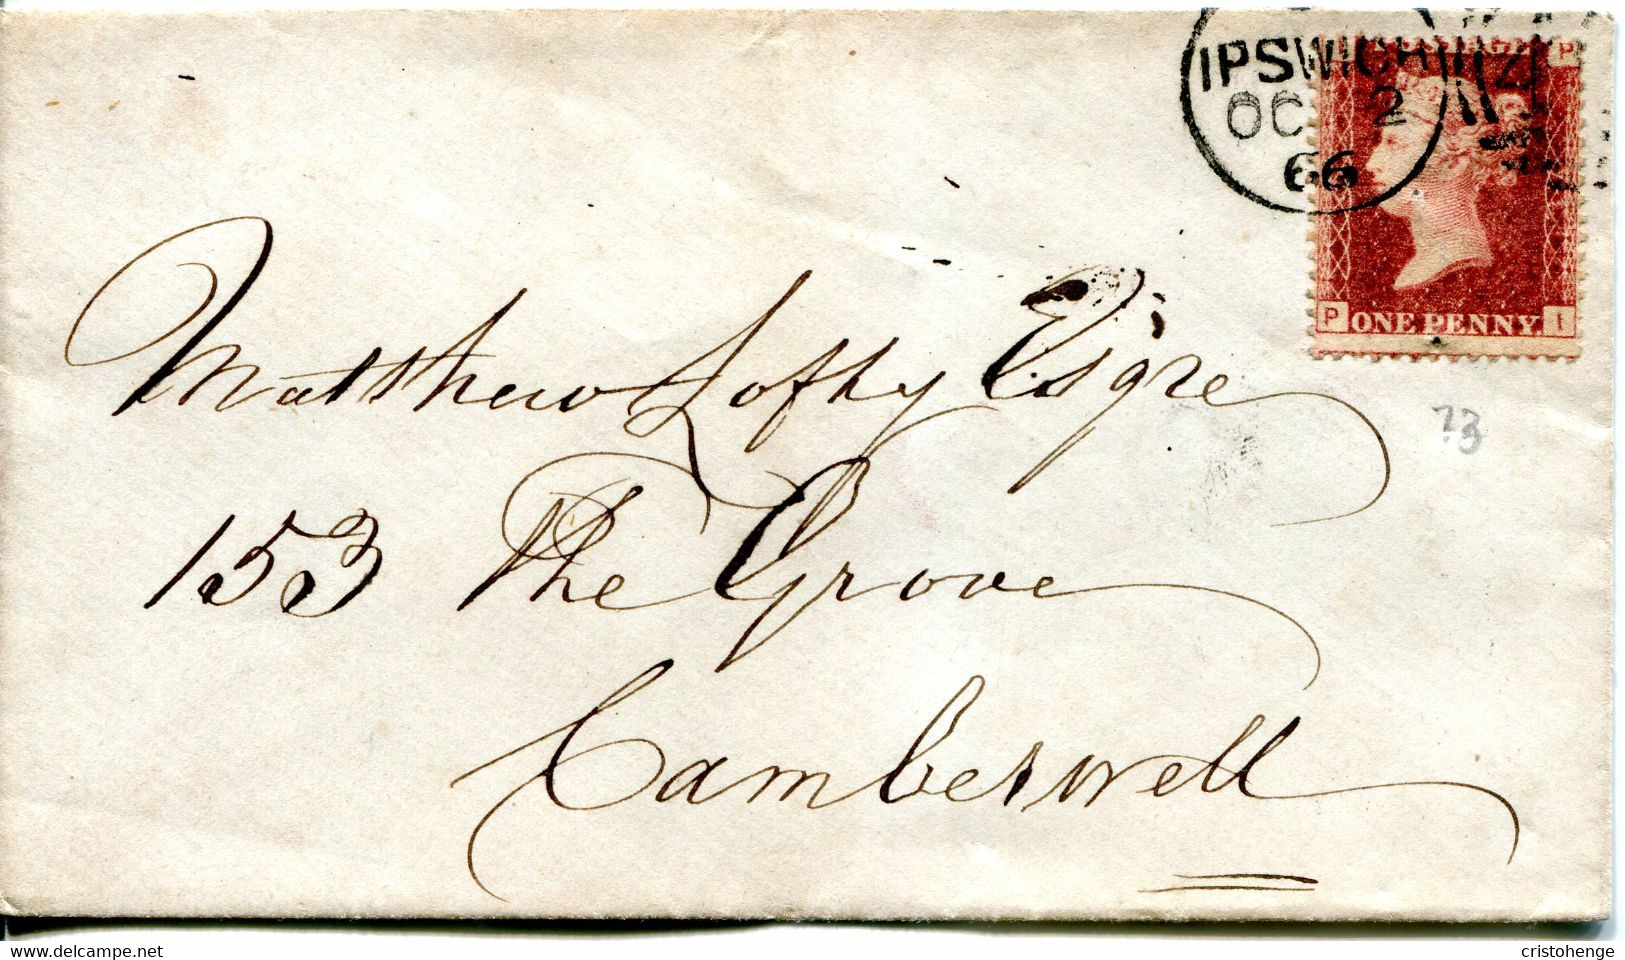 IPSWICH
OC 2
66
P
P I
ONE PENNY
Matthew Lofty Esqre
153 The Grove
Camberwell
73
www.delcampe.net
cristohenge